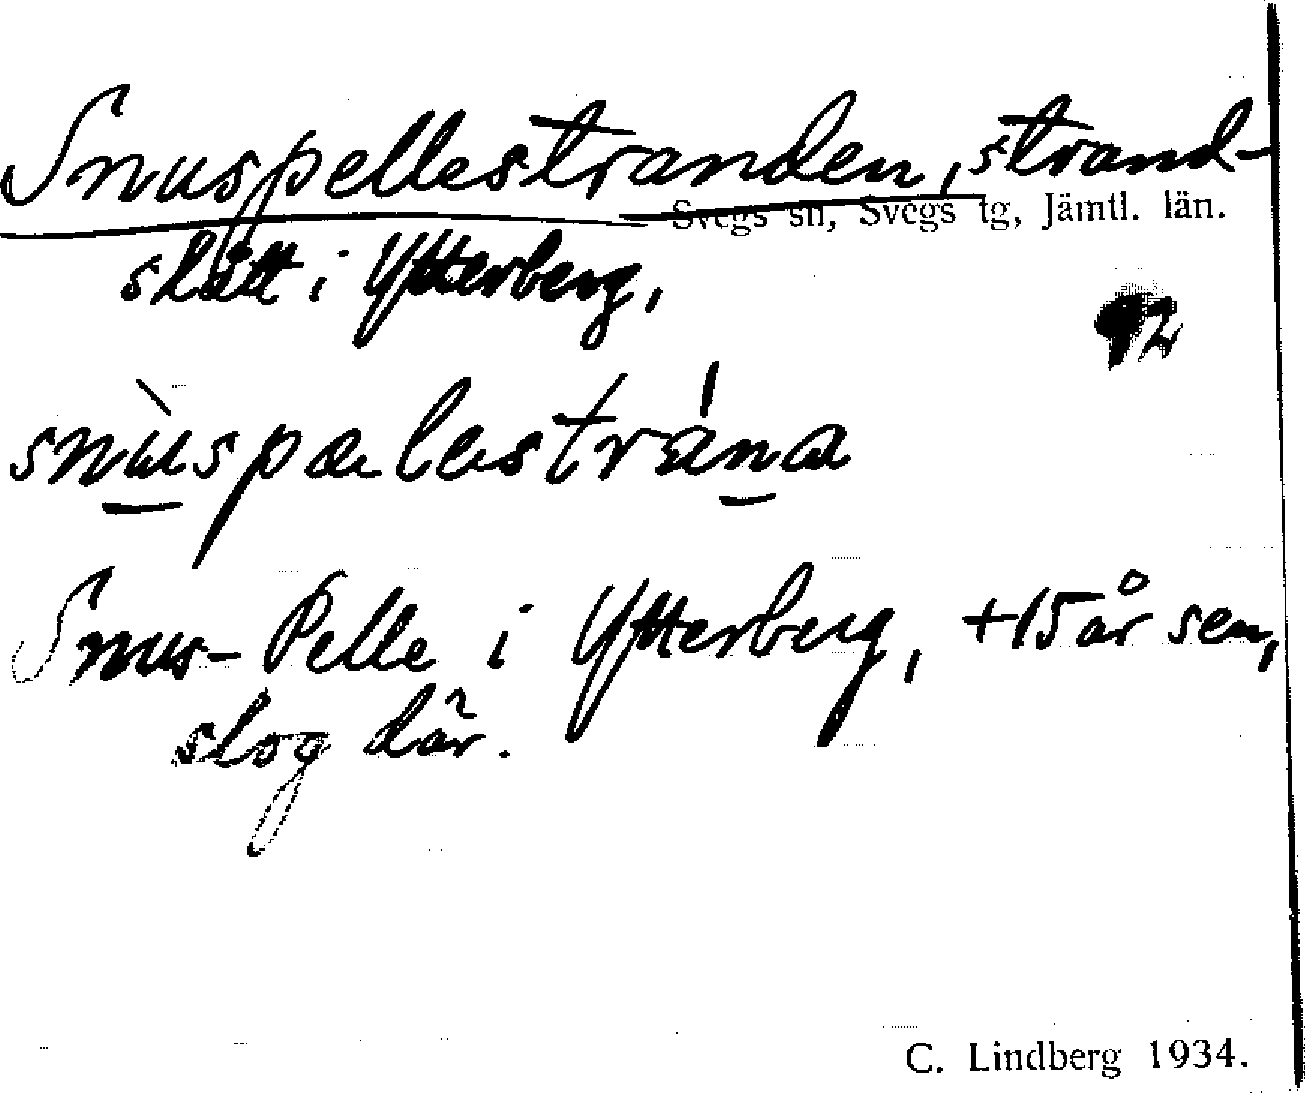 Snuspellestranden, strand-
Svegs sn, Svegs tg, Jämtl. län.
slått i Ytterberg,
92
snùspælestrána
Snus-Pelle i Ytterberg, +15 år sen,
slog där.
C. Lindberg 1934.